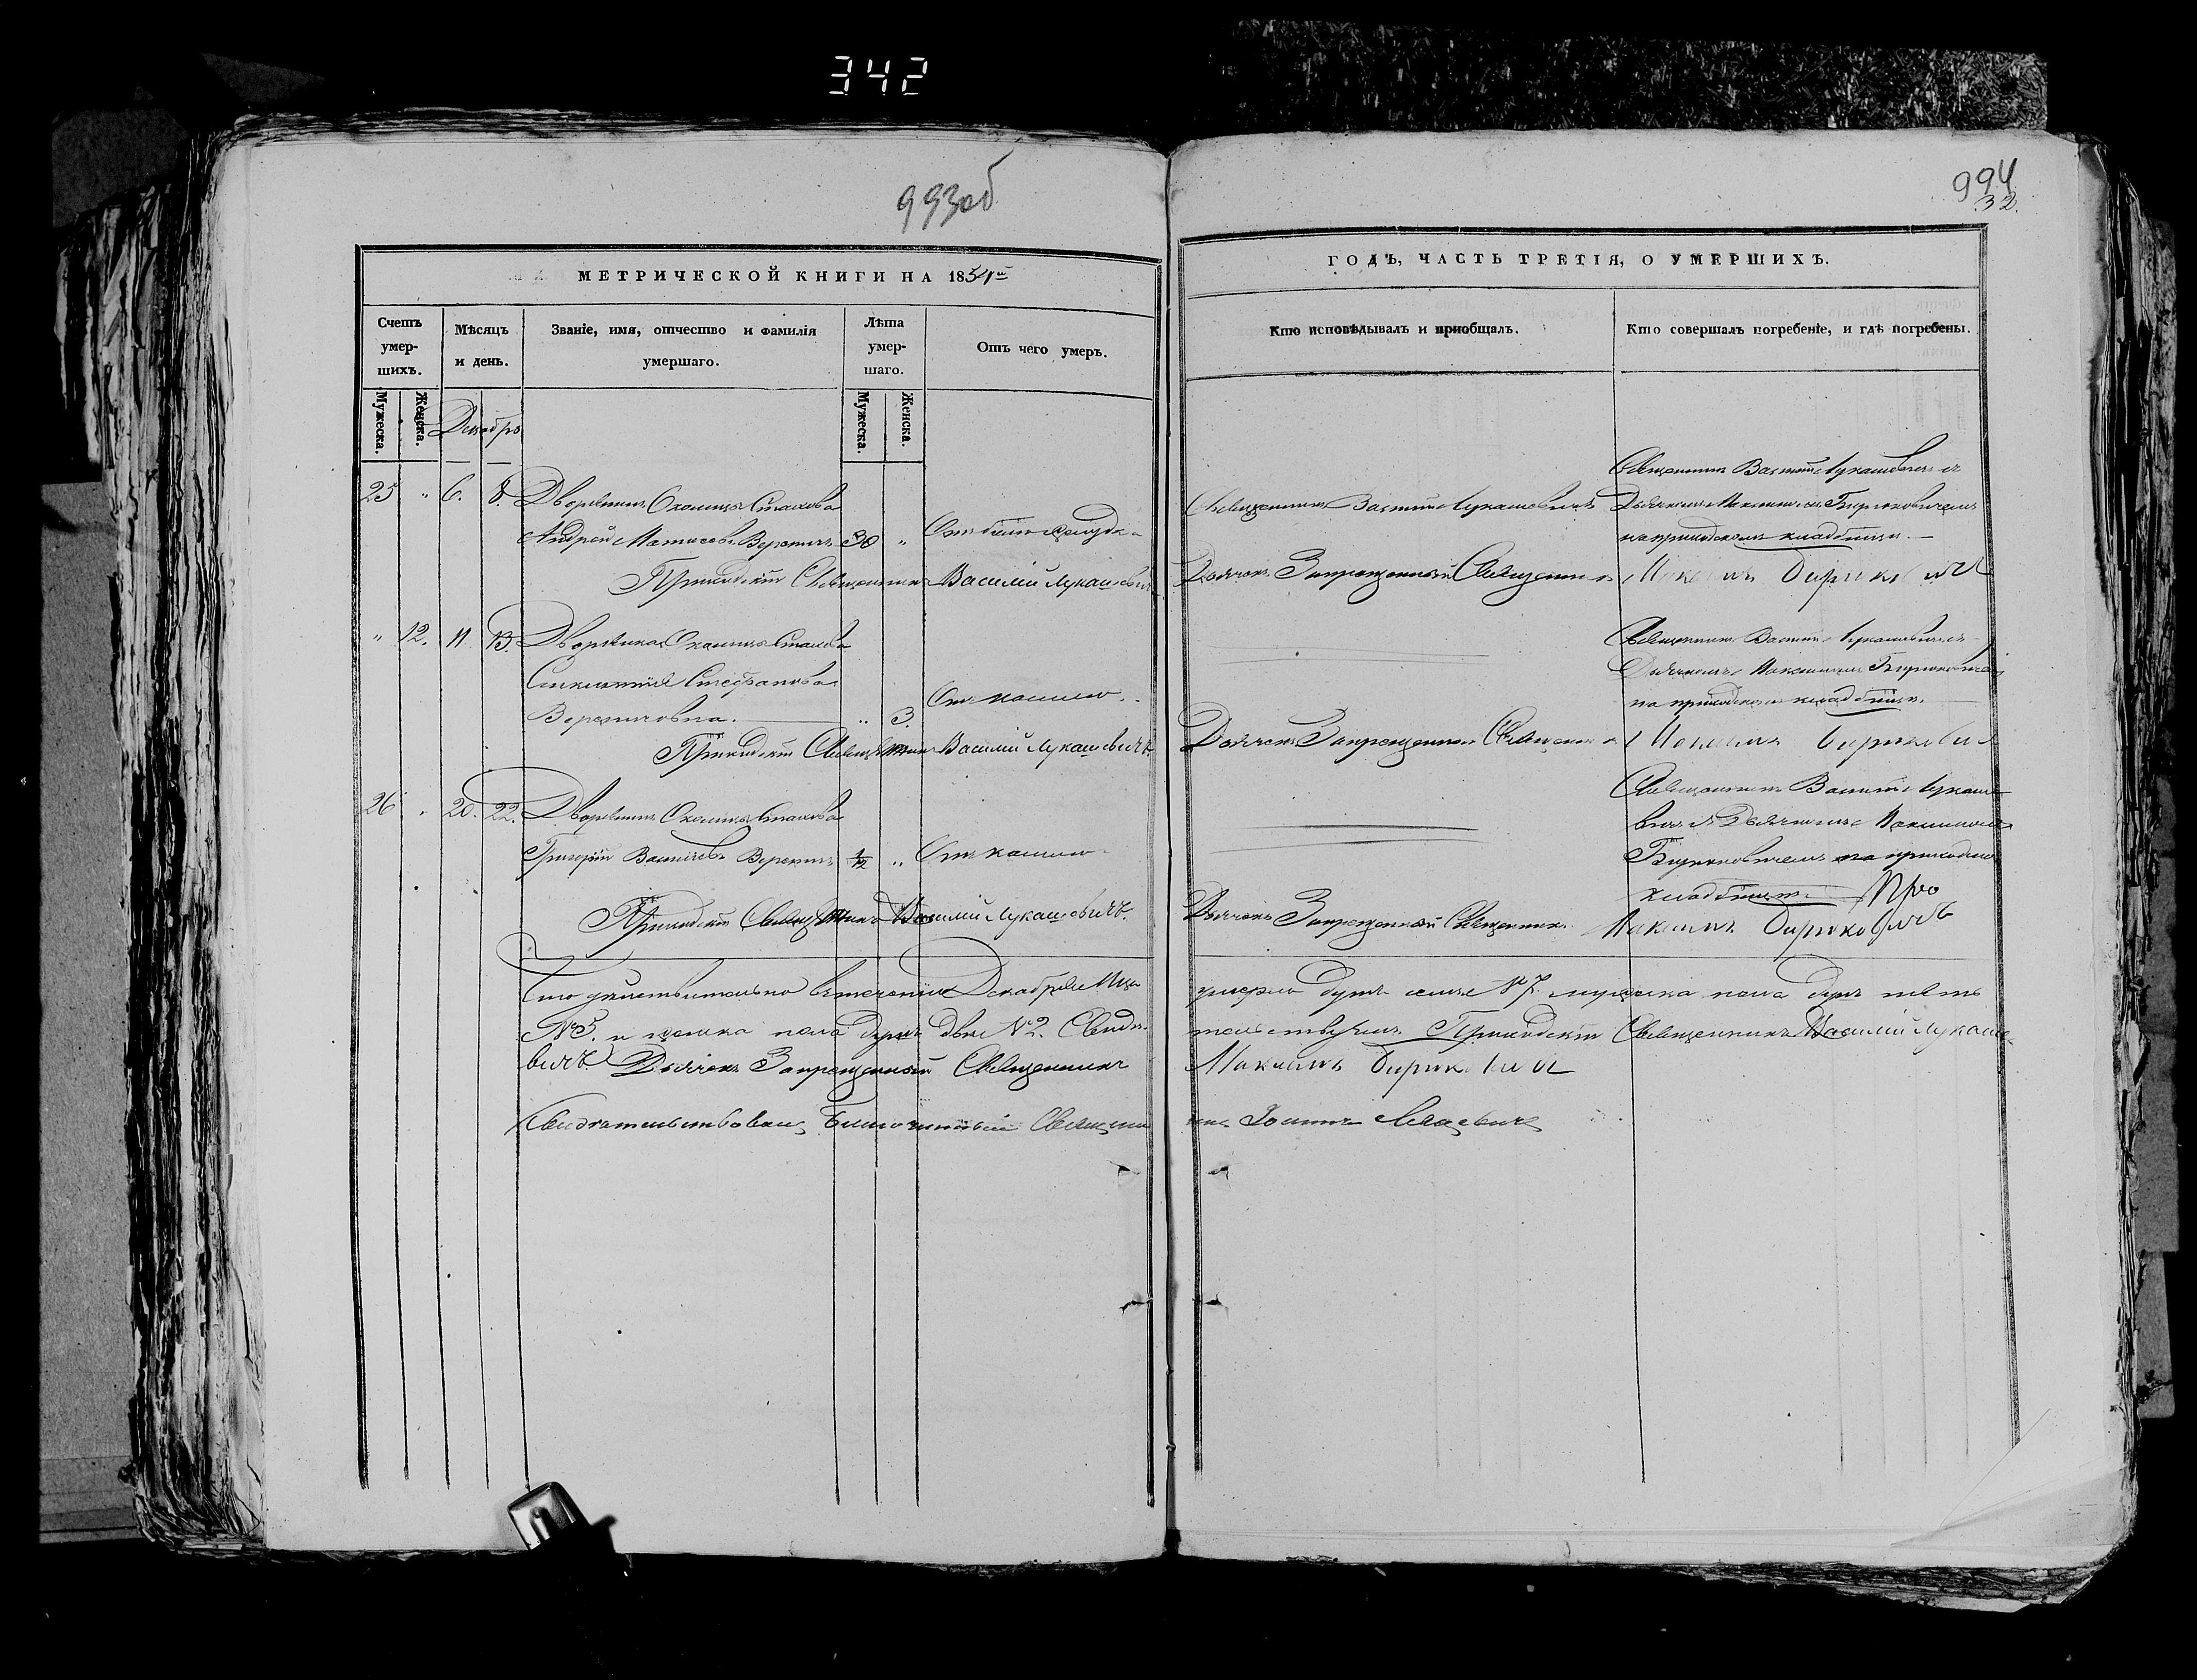 342
993об
994
32.
МЕТРИЧЕСКОЙ КНИГИ НА 1851й
ГОДЪ, ЧАСТЬ ТРЕТІЯ, О УМЕРШИХЪ.
Счетъ умер-шихъ.
Мѣсяцъ и день.
Званіе, имя, отчество и фамилія умершаго.
Лѣта умер-шаго.
Отъ чего умеръ.
Кто исповѣдывалъ и приобщалъ.
Кто совершалъ погребеніе, и гдѣ погребены.
Мужеска.
Женска.
Декабрь
Мужеска.
Женска.
Священникъ Василій Лукашевичъ съ
25 " 6. 8. Дворянинъ Околицы Стахова
Священникъ Василій Лукашевичъ
Дьячкомъ Максимомъ Бирюковичемъ
Андрей Матвеевъ Вереничъ 30 "
на приходскомъ кладбищи.
Приходскій Священникъ Василій Лукашевичъ
Дьячокъ Запрещенный Священникъ Максимъ Бирюковичъ
" 12. 11. 13. Дворянка Околицы Стахова
Священникъ Василій Лукашевичъ съ
Стефанова
Дьячкомъ Максимомъ Бирюковичемъ
Вереничовна. " 3. Отъ кашлю.
на приходскомъ кладбищи.
Приходскій Священникъ Василій Лукашевичъ
Дьячокъ Запрещенный Священникъ Максимъ Бирюковичъ
26 " 20. 22. Дворянинъ Околицы Стахова
Священникъ Василій Лукаше-
вичъ съ Дьячкомъ Максимомъ
Григорій Васильевъ Вереничъ 1/12 " Отъ кашлю
Бирюковичемъ на приходскомъ
кладбищи.
Приходскій Священникъ Василій Лукашевичъ.
Дьячокъ Запрещенный Священникъ Максимъ Бирюковичъ
Что дѣйствительно въ теченіи Декабря Мца умерло душъ семь №7. мужеска пола душъ пять
№5. и женска пола душъ двѣ №2. Свидѣтельствуемъ Приходскій Священникъ Василій Лукаше-
вичъ Дьячокъ Запрещенный Священникъ Максимъ Бирюковичъ
Свидѣтельствовалъ Благочинный Священникъ Іоаннъ